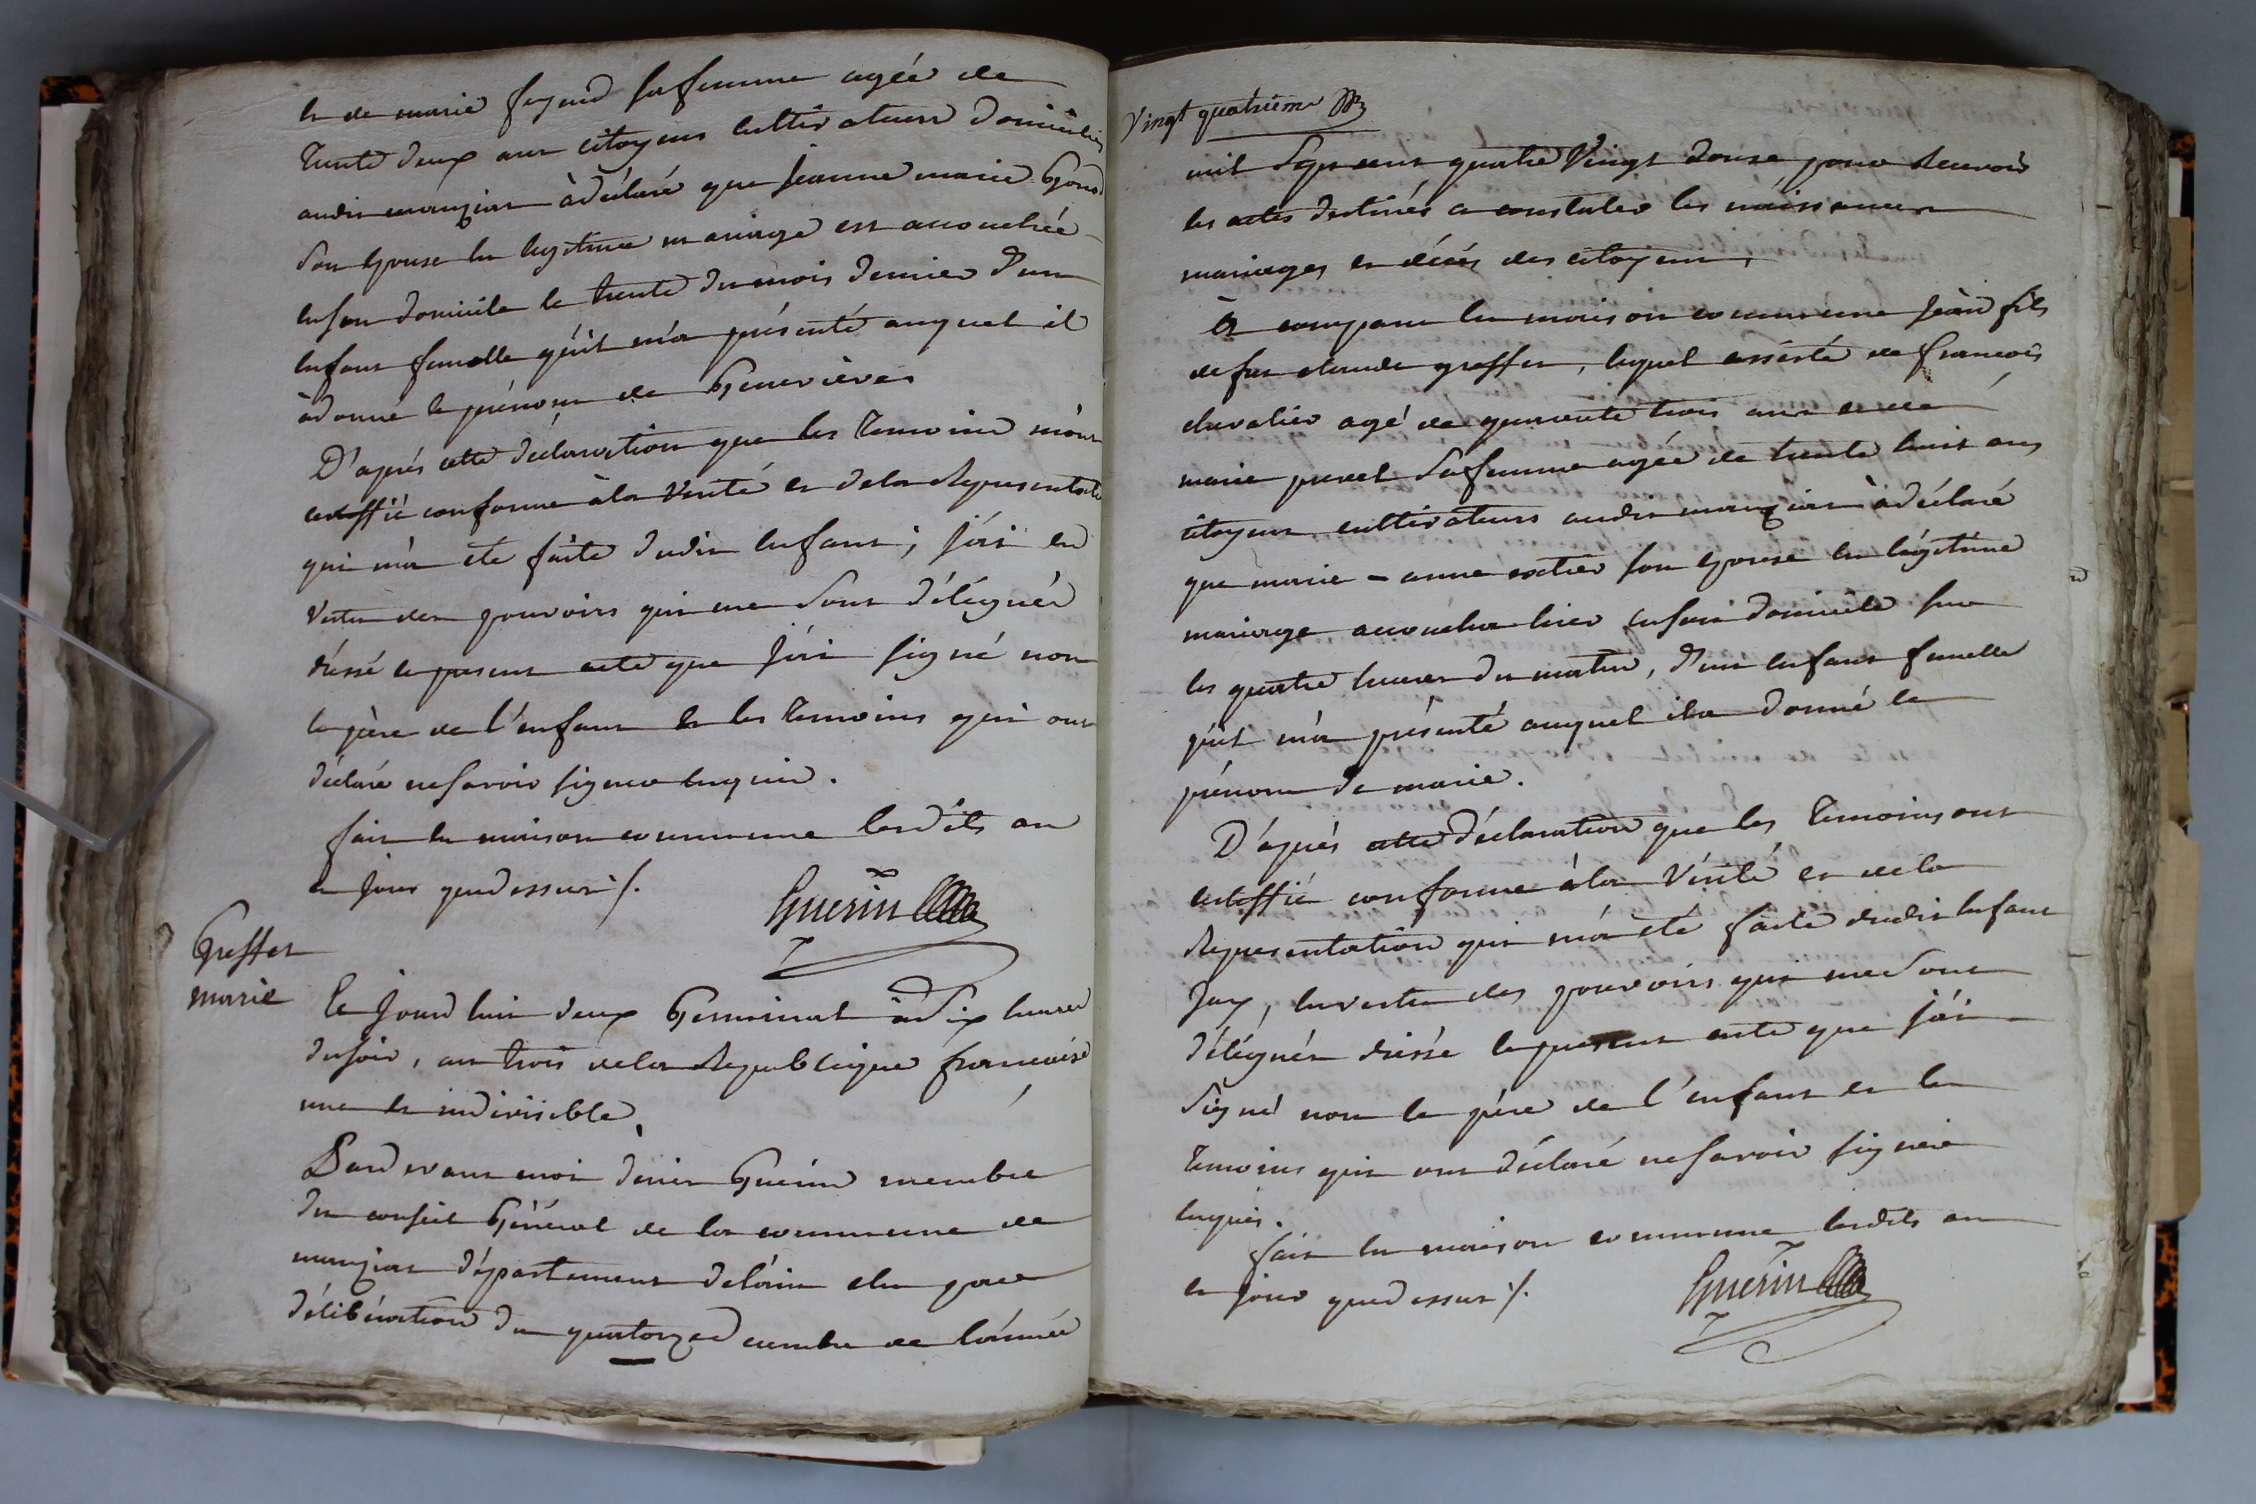 et de marie fayard sa femme agée de
trente deux ans citoyens cultivateurs domiciliés
audit marigiat à déclaré que jeanne marie
son epouse en legitime mariage est accouchée
en son domicile le trente du mois dernier d'un
enfant femelle qu'il m'a présenté auquel il
à donné le prénom de Genevieve
D'aprés cette déclaration que les temoins m'ont
certiffié conforme à la verité et de la Representation
qui m'a eté faite dudit enfant, j'ai en
vertu des pouvoirs qui me sont délégués
dréssé le present acte que j'ai signé non
le pére de l'enfant et les temoins qui ont
déclaré ne savoir signer enquis.
fait en maison commune lesdits an
et jour que dessus ./.
Guerin
Greffet
marie
Ce Jourd'huit deux Germinal à six heures
du soir, an trois de la Republique francaise
une et indivisible,
Pardevant moi Guerin membre
du conseil Général de la commune de
département de l'ain elu par
délibération du quatorze décembre de l'année
Vingt quatrieme
mil sept cent quatre Vingt douze pour recevoir
les actes destinés a constater les naissances
mariages et décés des citoyens,
Est comparu en maison commune jean fils
de feu claude greffet, lequel assisté de francois
chevalier agé de quarante trois ans et de
marie sa femme agée de trente huit ans
citoyens cultivateurs audit marigiat à déclaré
que marie - anne son epouse en légitime
mariage accoucha hier en son domicile sur
les quatre heures du matin, d'un enfant femelle
qu'il m'a présenté auquel il a donné le
prénom de marie.
D'aprés cette déclaration que les temoins ont
certiffié conforme à la Vérité et de la
Representation qui m'a eté faite dudit enfant
Jay, en vertu des pouvoirs qui me sont
délégués dréssé le present acte que j'ai
signé non le pére de l'enfant et les
temoins qui ont déclaré ne savoir signer
enquis.
fait en maison commune lesdits an
et jour que dessus ./.
Guerin